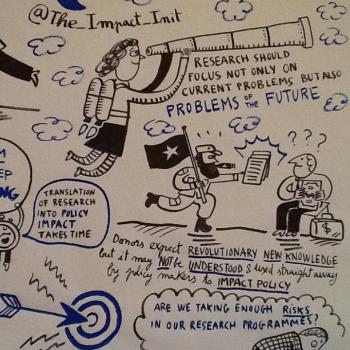 @The_Impact_Init
RESEARCH SHOULD
FOCUS NOT ONLY ON
CURRENT PROBLEMS BUT ALSO
PROBLEMS OF THE FUTURE
???
TRANSLATION
OF RESEARCH
INTO POLICY
IMPACT
TAKES TIME
$
Donors expect REVOLUTIONARY NEW KNOWLEDGE
but it may NOT be UNDERSTOOD & used straight away
by policy makers to IMPACT POLICY
ARE WE TAKING ENOUGH RISKS
IN OUR RESEARCH PROGRAMMES?